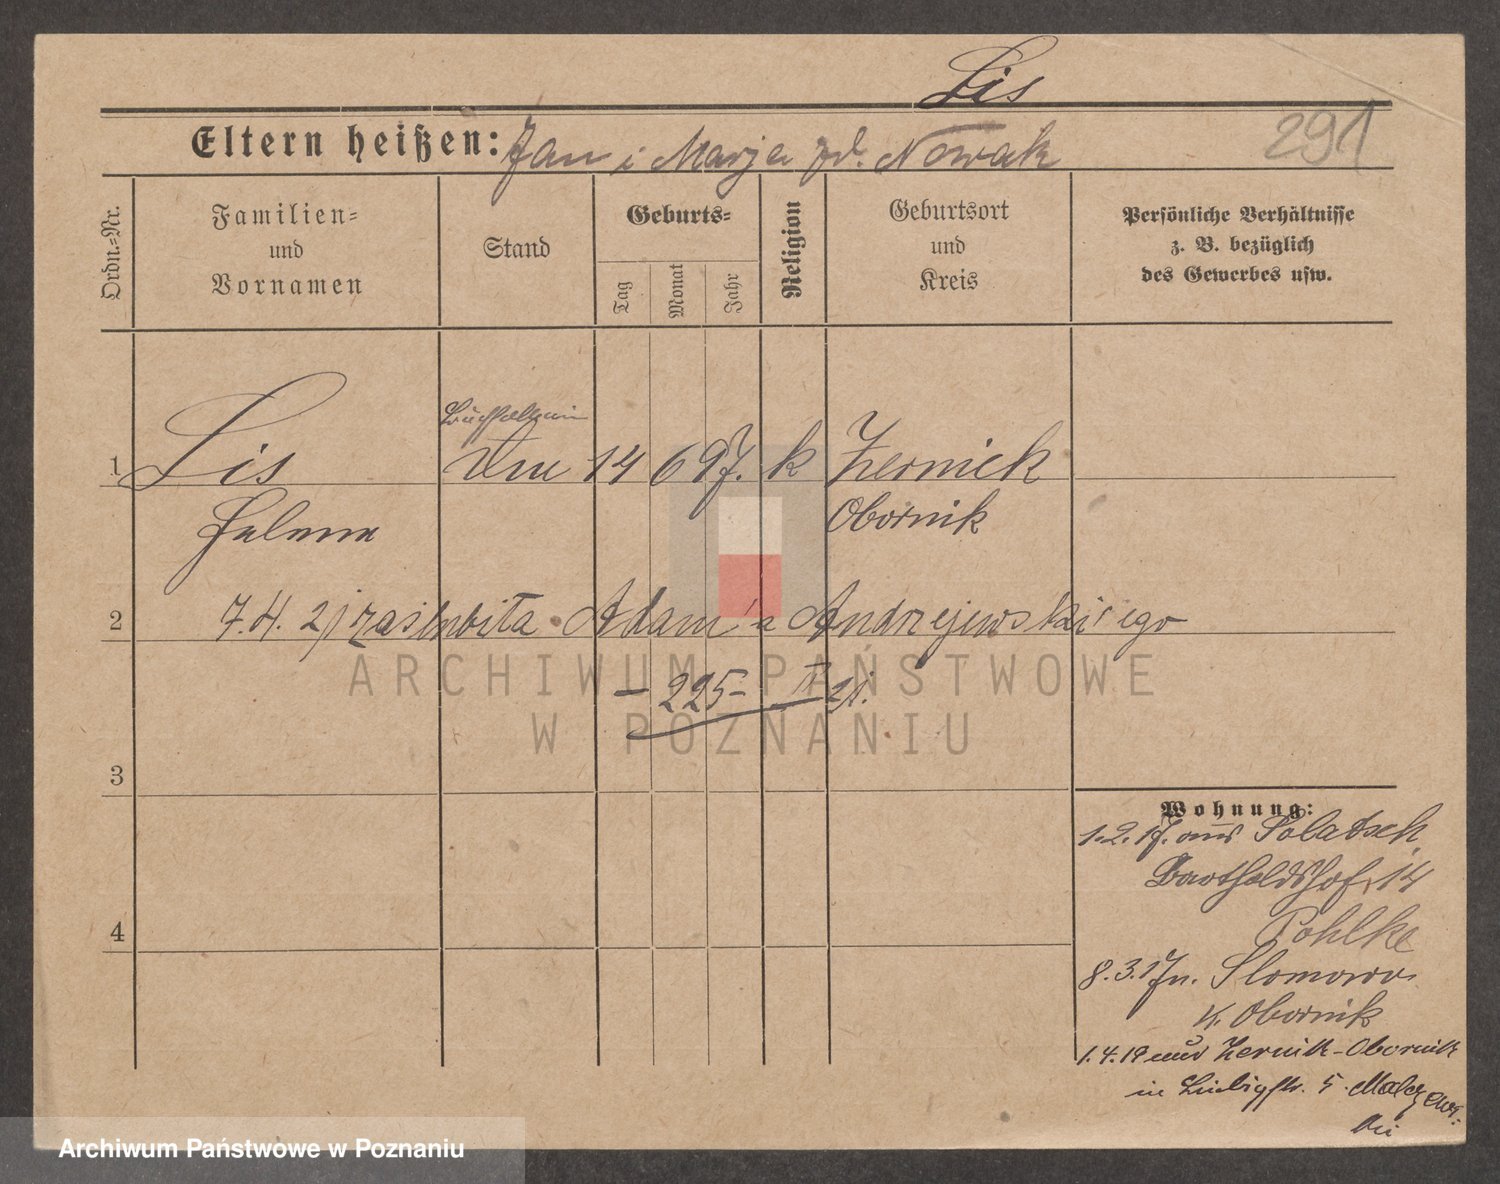 Lis
Eltern heißen: Jan i Marja zd. Nowak
291
Ordn.=Nr.
Familien=
und
Vornamen
Stand
Geburts=
Tag
Monat
Jahr
Religion
Geburtsort
und
Kreis
Persönliche Verhältnisse
z. B. bezüglich
des Gewerbes usw.
Buchhalterin
1 Lis 14 6 97. k Zernick
Helena Obornik
2 7.4. 21 zaślubiła Adam'a Andrzejewski'ego
– 225 – IV 21.
3
4
Wohnung:
1.2.17. aus Solatsch
Bartholdshof 14
Pohlke
8.3.17 n. Slomowo
K. Obornik
1.4.19 aus Zernik-Obornik
in Liebigstr. 5. Malczews-
ki
ARCHIWUM PAŃSTWOWE
W POZNANIU
Archiwum Państwowe w Poznaniu